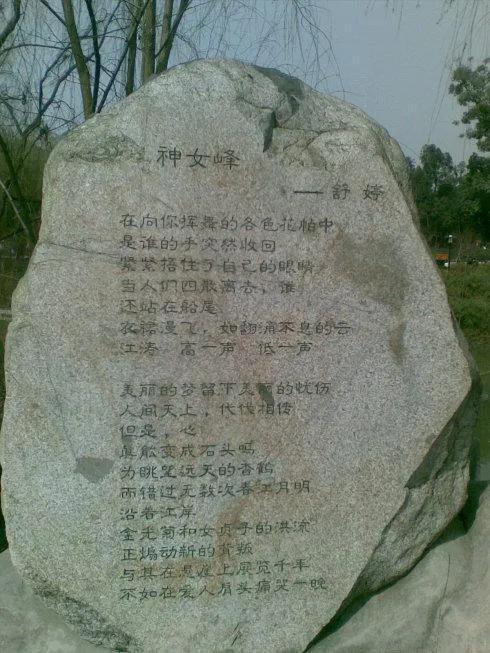 神女峰
——舒婷
在向你挥舞的各色花帕中
是谁的手突然收回
紧紧捂住了自己的眼睛
当人们四散离去，谁
还站在船尾
衣裙漫飞，如翻涌不息的云
江涛　高一声　低一声
美丽的梦留下美丽的忧伤
人间天上，代代相传
但是，心
真能变成石头吗
为眺望远天的杳鹤
而错过无数次春江月明
沿着江岸
金光菊和女贞子的洪流
正煽动新的背叛
与其在悬崖上展览千年
不如在爱人肩头痛哭一晚